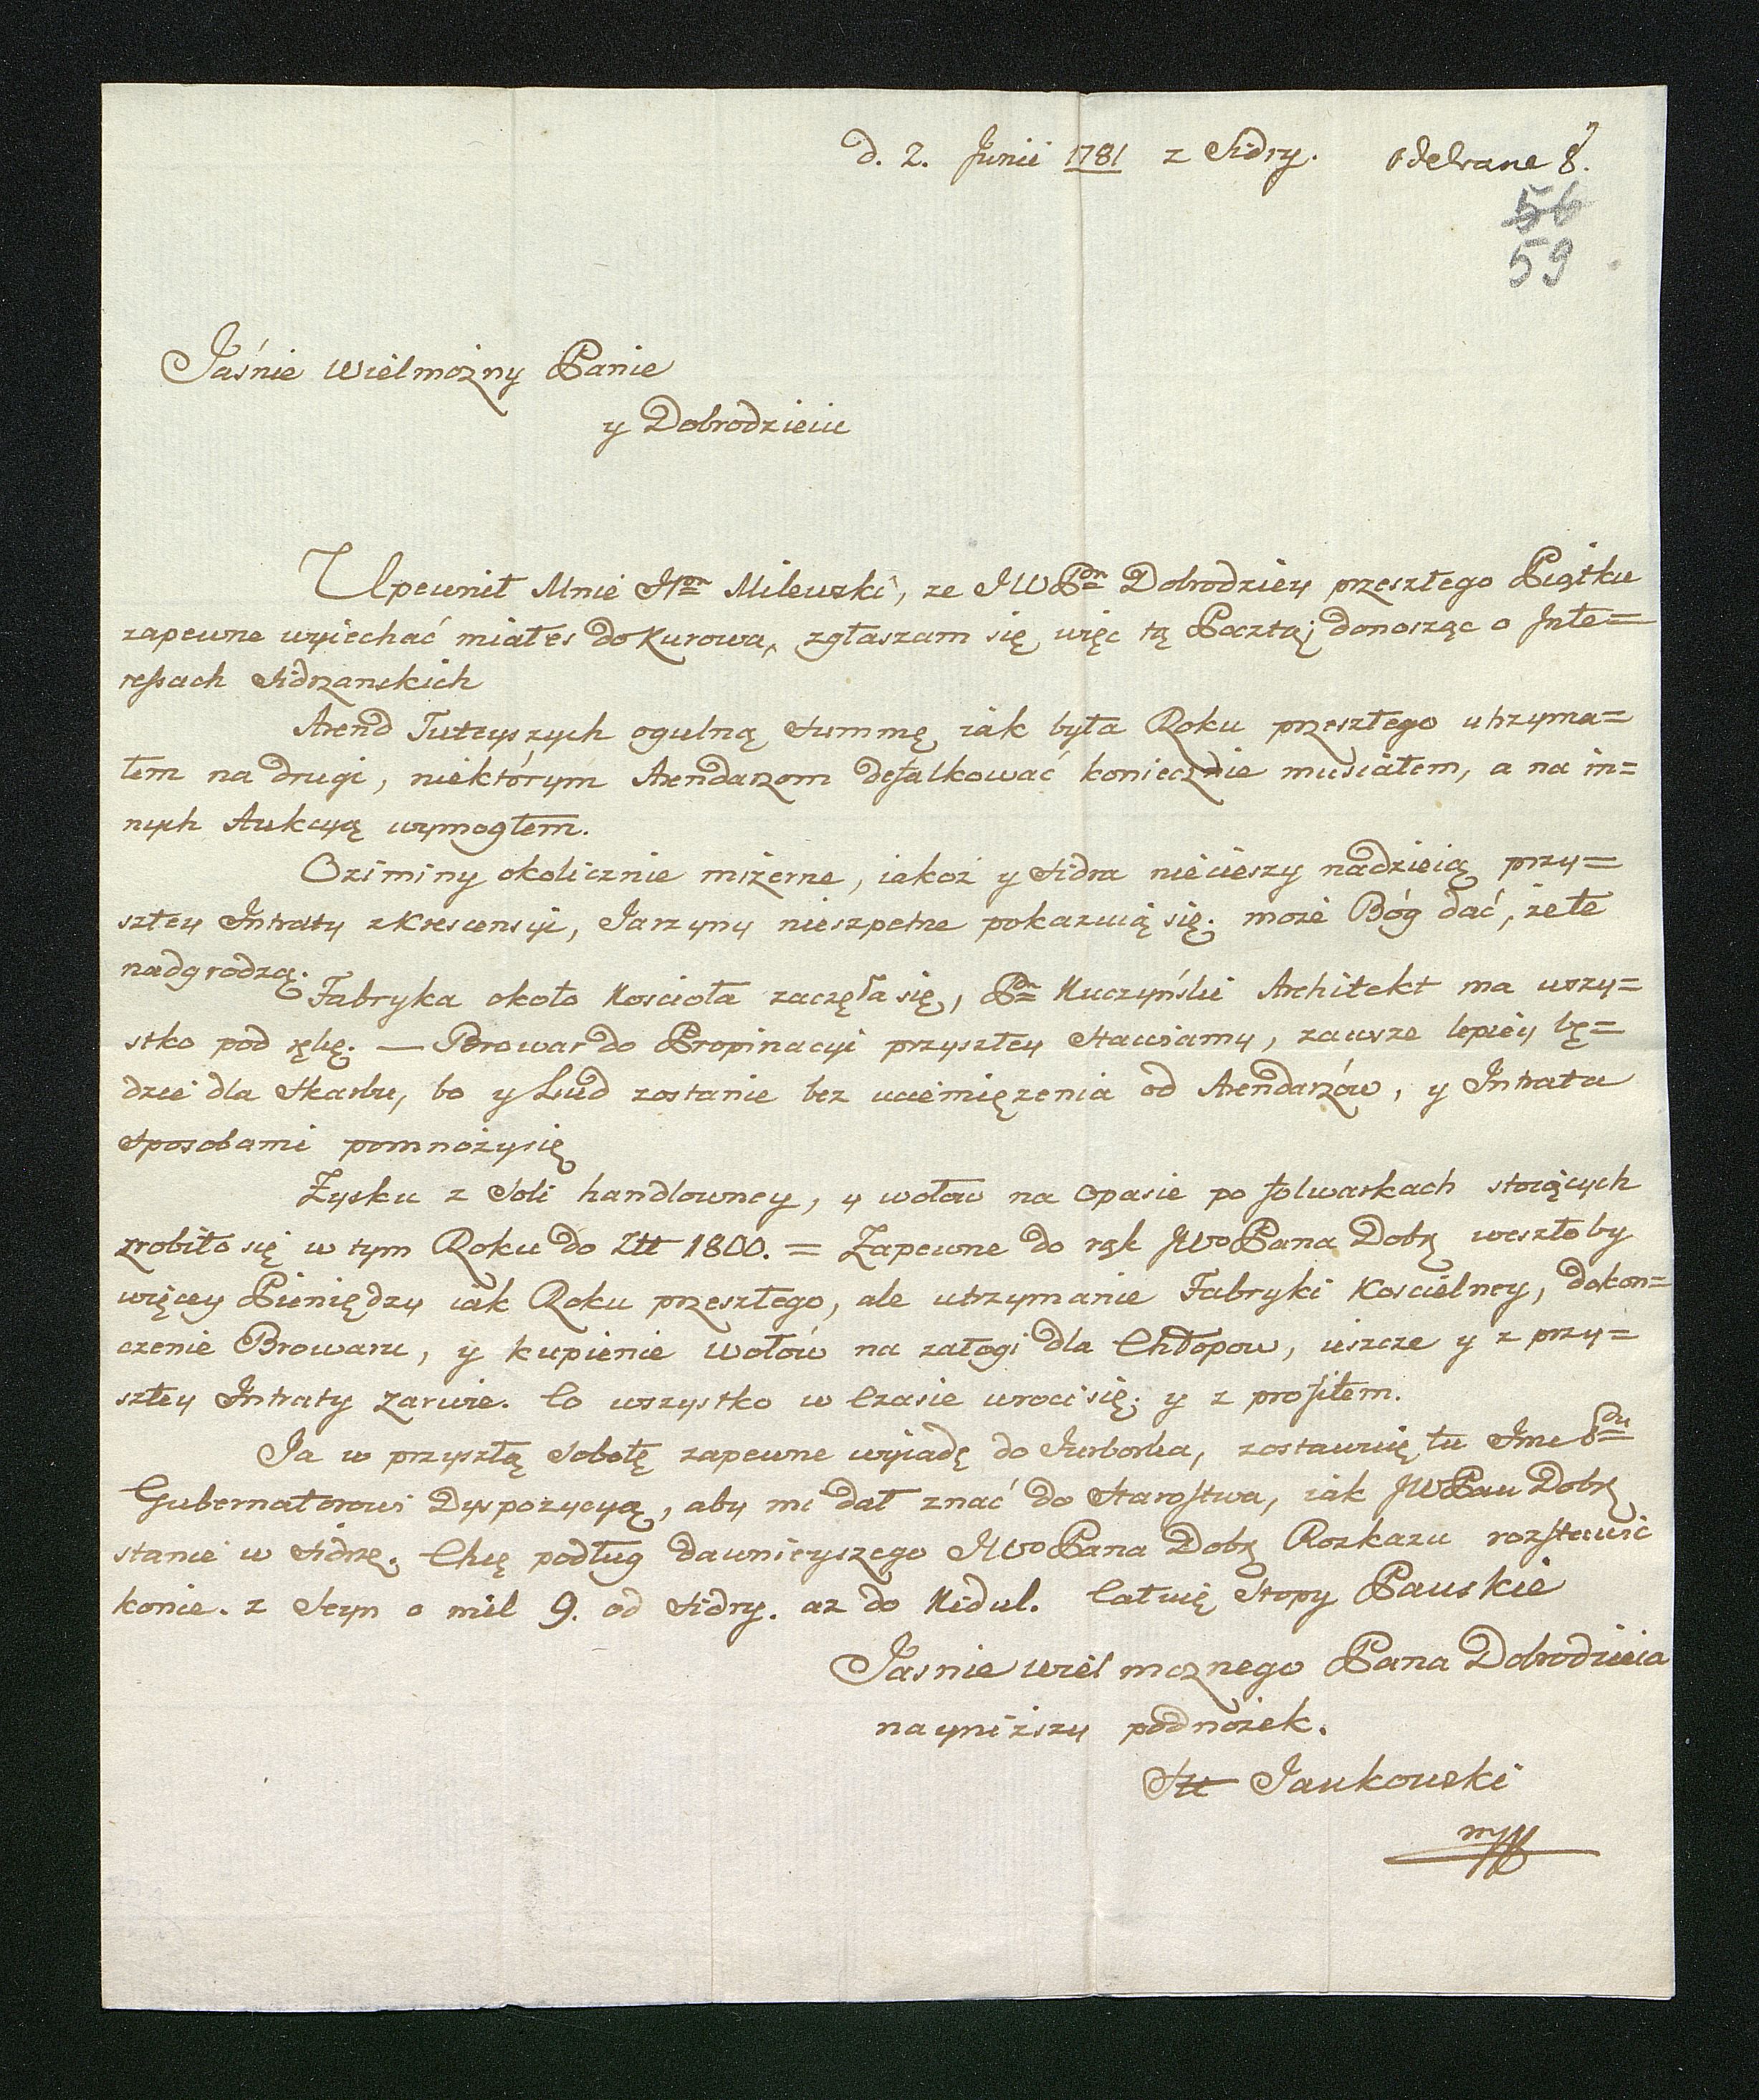 d. 2. Junii 1781 z Sidry. odebrane 8.
56
59
Jaśnie Wielmożny Panie
y Dobrodzieiu
Upewnił Mnie JPan Milewski, ze JWPan Dobrodziey przeszłego Piątku
zapewne wyiechać miałes do Kurowa, zgłaszam się więc tą Pocztą; donosząc o Inte=
ressach Sidrzanskich
Arend Tuteyszych ogulną Summę iak była Roku przeszłego utrzyma=
łem na drugi, niektórym Arendarzom defalkować koniecznie musiałem, a na in=
nych Aukcyą wymogłem.
Oziminy okolicznie mizerne, iakoż y Sidra niecieszy nadzieią przy=
szłey Intraty z Krescensyi, Jarzyny nieszpetne pokazuią się; może Bóg dać, że te
nadgrodzą.
Fabryka około Koscioła zaczęła się, Pan Kuczyński Architekt ma wszy=
stko pod ręką. — Browar do Propinacyi przyszłey Stawiamy, zawsze lepiey bę=
dzie dla Skarbu, bo y Lud zostanie bez uciemięzenia od Arendarzów, y Intrata
Sposobami pomnozysię
Zysku z Soli handlowney, y wołow na Opasie po folwarkach stoiących
zrobiło się w tym Roku do Złł 1800. = Zapewne do rąk JWo Pana Dobr weszło by
więcey Pieniędzy iak Roku przeszłego, ale utrzymanie Fabryki Koscielney, dokon=
czenie Browaru, y kupienie Wołów na załogi dla Chłopow, ieszcze y z przy=
szłey Intraty Zarwie. Co wszystko w Czasie wroci się; y z profitem.
Ja w przyszłą Sobotę zapewne wyiadę do Jurborka, zostawuię tu Jmc Panu
Gubernatorowi Dyspozycyą, aby mi dał znać do Starostwa, iak JWPan Dobr
stanie w Sidrze. Chcę podług dawnieyszego JWo Pana Dobr Rozkazu rozstawic
konie. z Seyn o mil 9. od Sidry. az do Kidul. Całuię Stopy Pauskie
Jasnie Wielmoznego Pana Dobrodzieia
nayniższy podnożek.
Jankowski
mpp